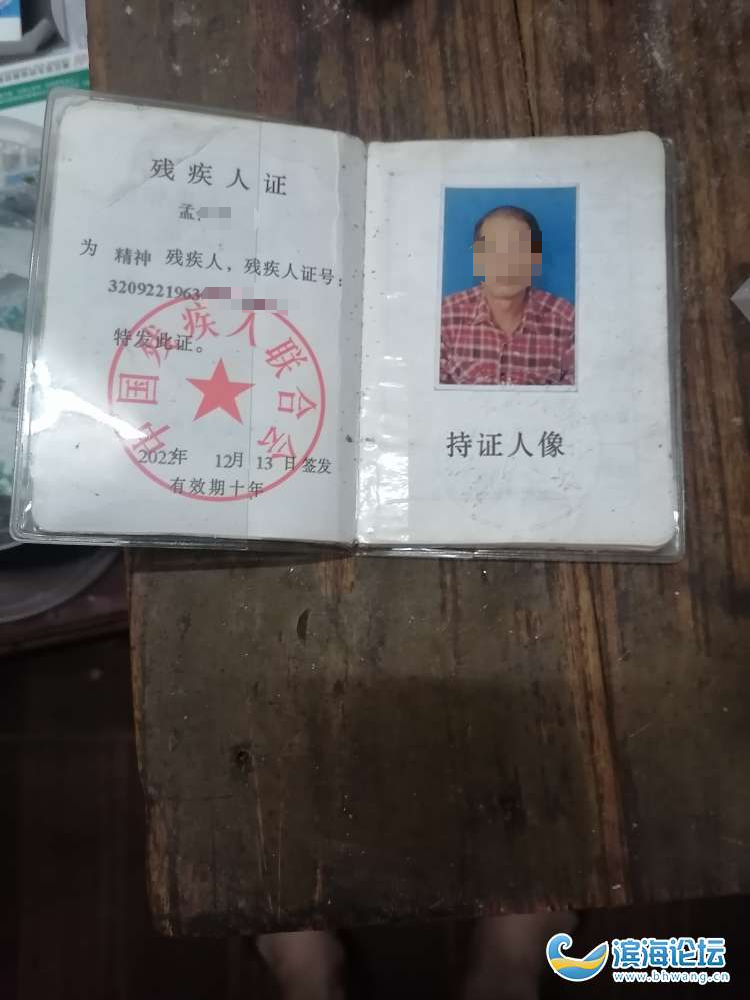 残疾人证
孟
为 精神 残疾人，残疾人证号：
3209221963
特发此证。
中国残疾人联合会
2022年 12月 13日签发
有效期十年
持证人像
滨海论坛
www.bhwang.cn